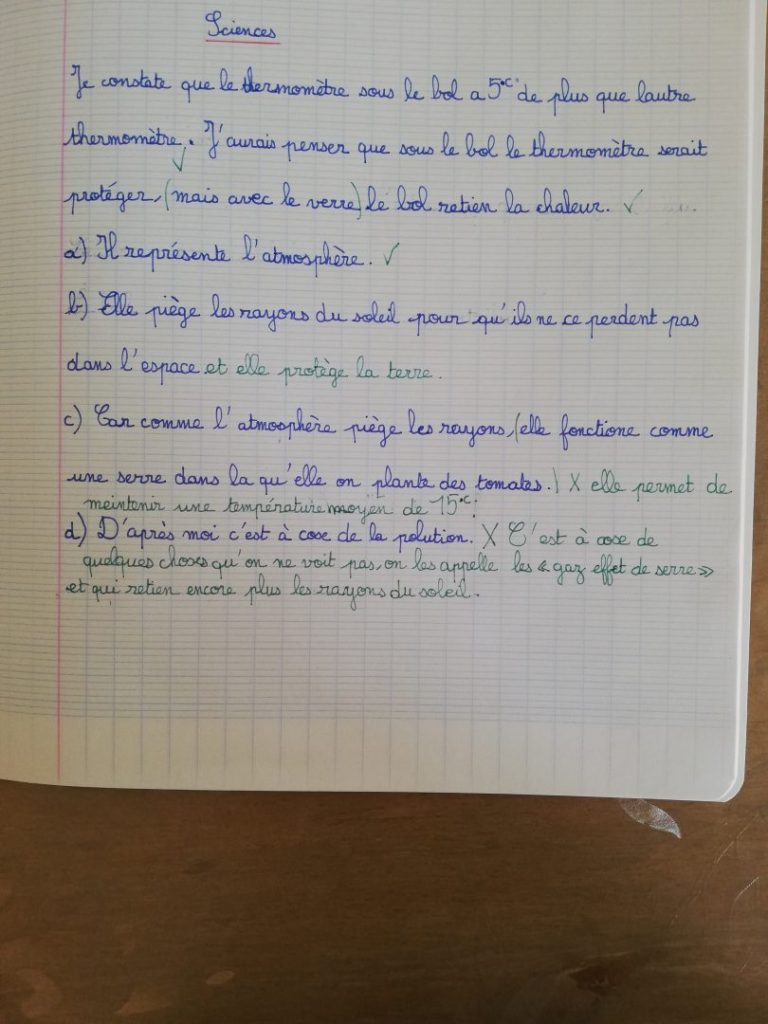 Sciences
Je constate que le thermomètre sous le bol a 5°C de plus que lautre
thermomètre. J'aurais penser que sous le bol le thermomètre serait
protéger, (mais avec le verre) le bol retien la chaleur. ✓
a) Il représente l'atmosphère. ✓
b) Elle piège les rayons du soleil pour qu'ils ne ce perdent pas
dans l'espace et elle protège la terre.
c) Car comme l'atmosphère piège les rayons, (elle fonctione comme
une serre dans la qu'elle on plante des tomates.) X elle permet de
meintenir une température moyen de 15°C.
d) D'après moi c'est à cose de la polution. X C'est à cose de
quelques choses qu'on ne voit pas, on les appelle les « gaz effet de serre »
et qui retien encore plus les rayons du soleil.